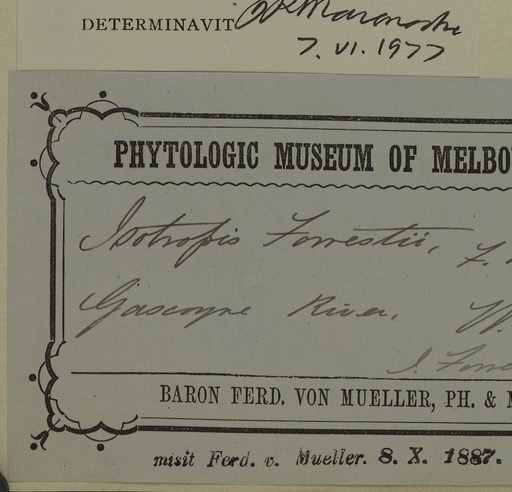 DETERMINAVIT
7. VI. 1977
PHYTOLOGIC MUSEUM OF MELBO
Isotropis Forrestii, F.
Gascoyne River. W.
J. Forre
BARON FERD. VON MUELLER, PH. & M
misit Ferd. v. Mueller. 8. X. 1887.